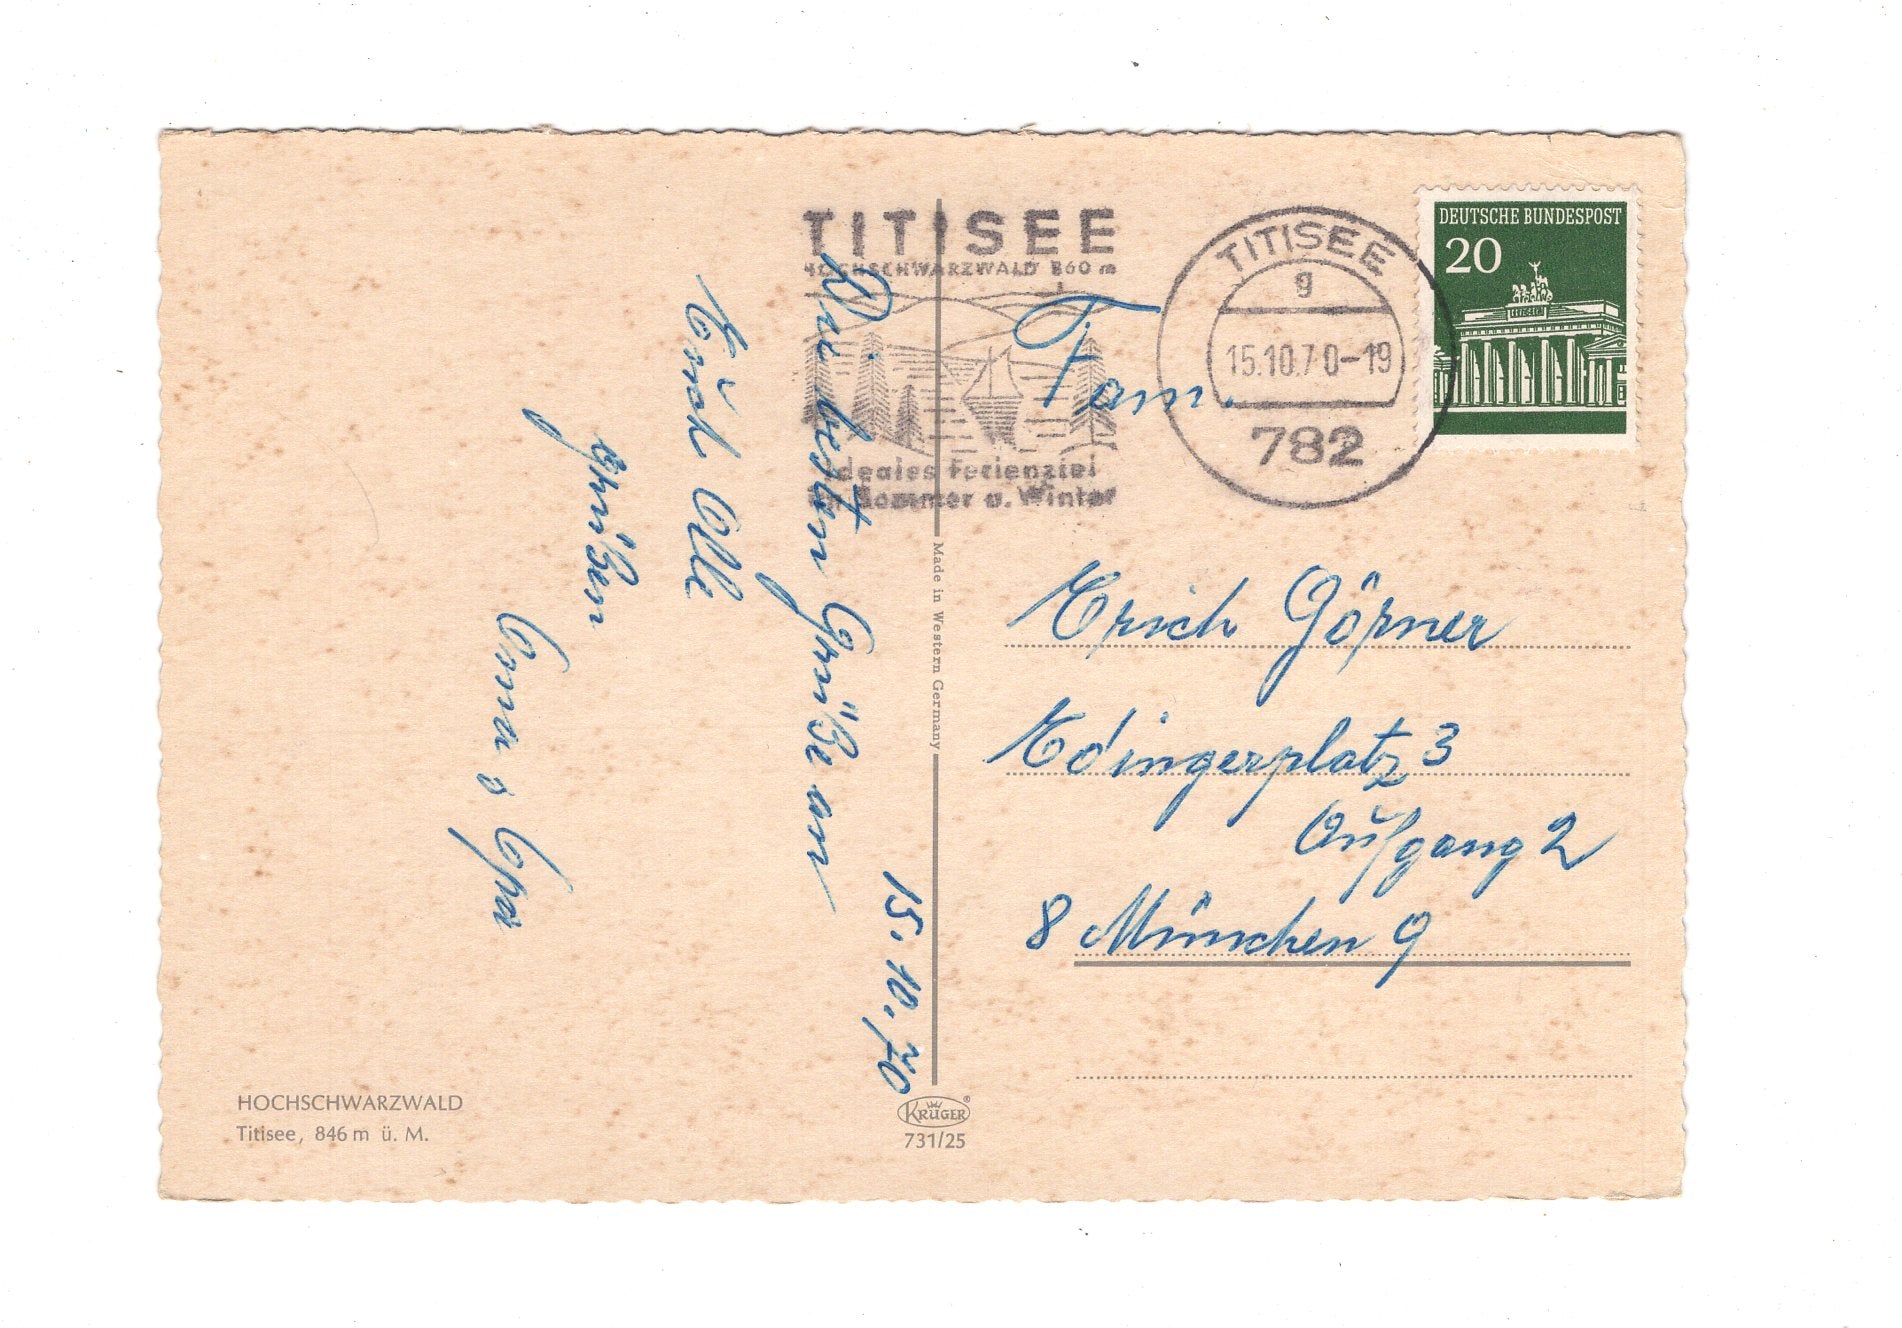 TITISEE
HOCHSCHWARZWALD 860 m
Ideales Ferienziel
im Sommer u. Winter
TITISEE
g
15.10.70-19
782
DEUTSCHE BUNDESPOST
20
15.10.70
Die besten Grüße an
Euch Alle
grüßen
Oma & Opa
Fam.
Erich Görner
Edingerplatz 3
Aufgang 2
8 München 9
Made in Western Germany
HOCHSCHWARZWALD
Titisee, 846 m ü. M.
KRÜGER®
731/25